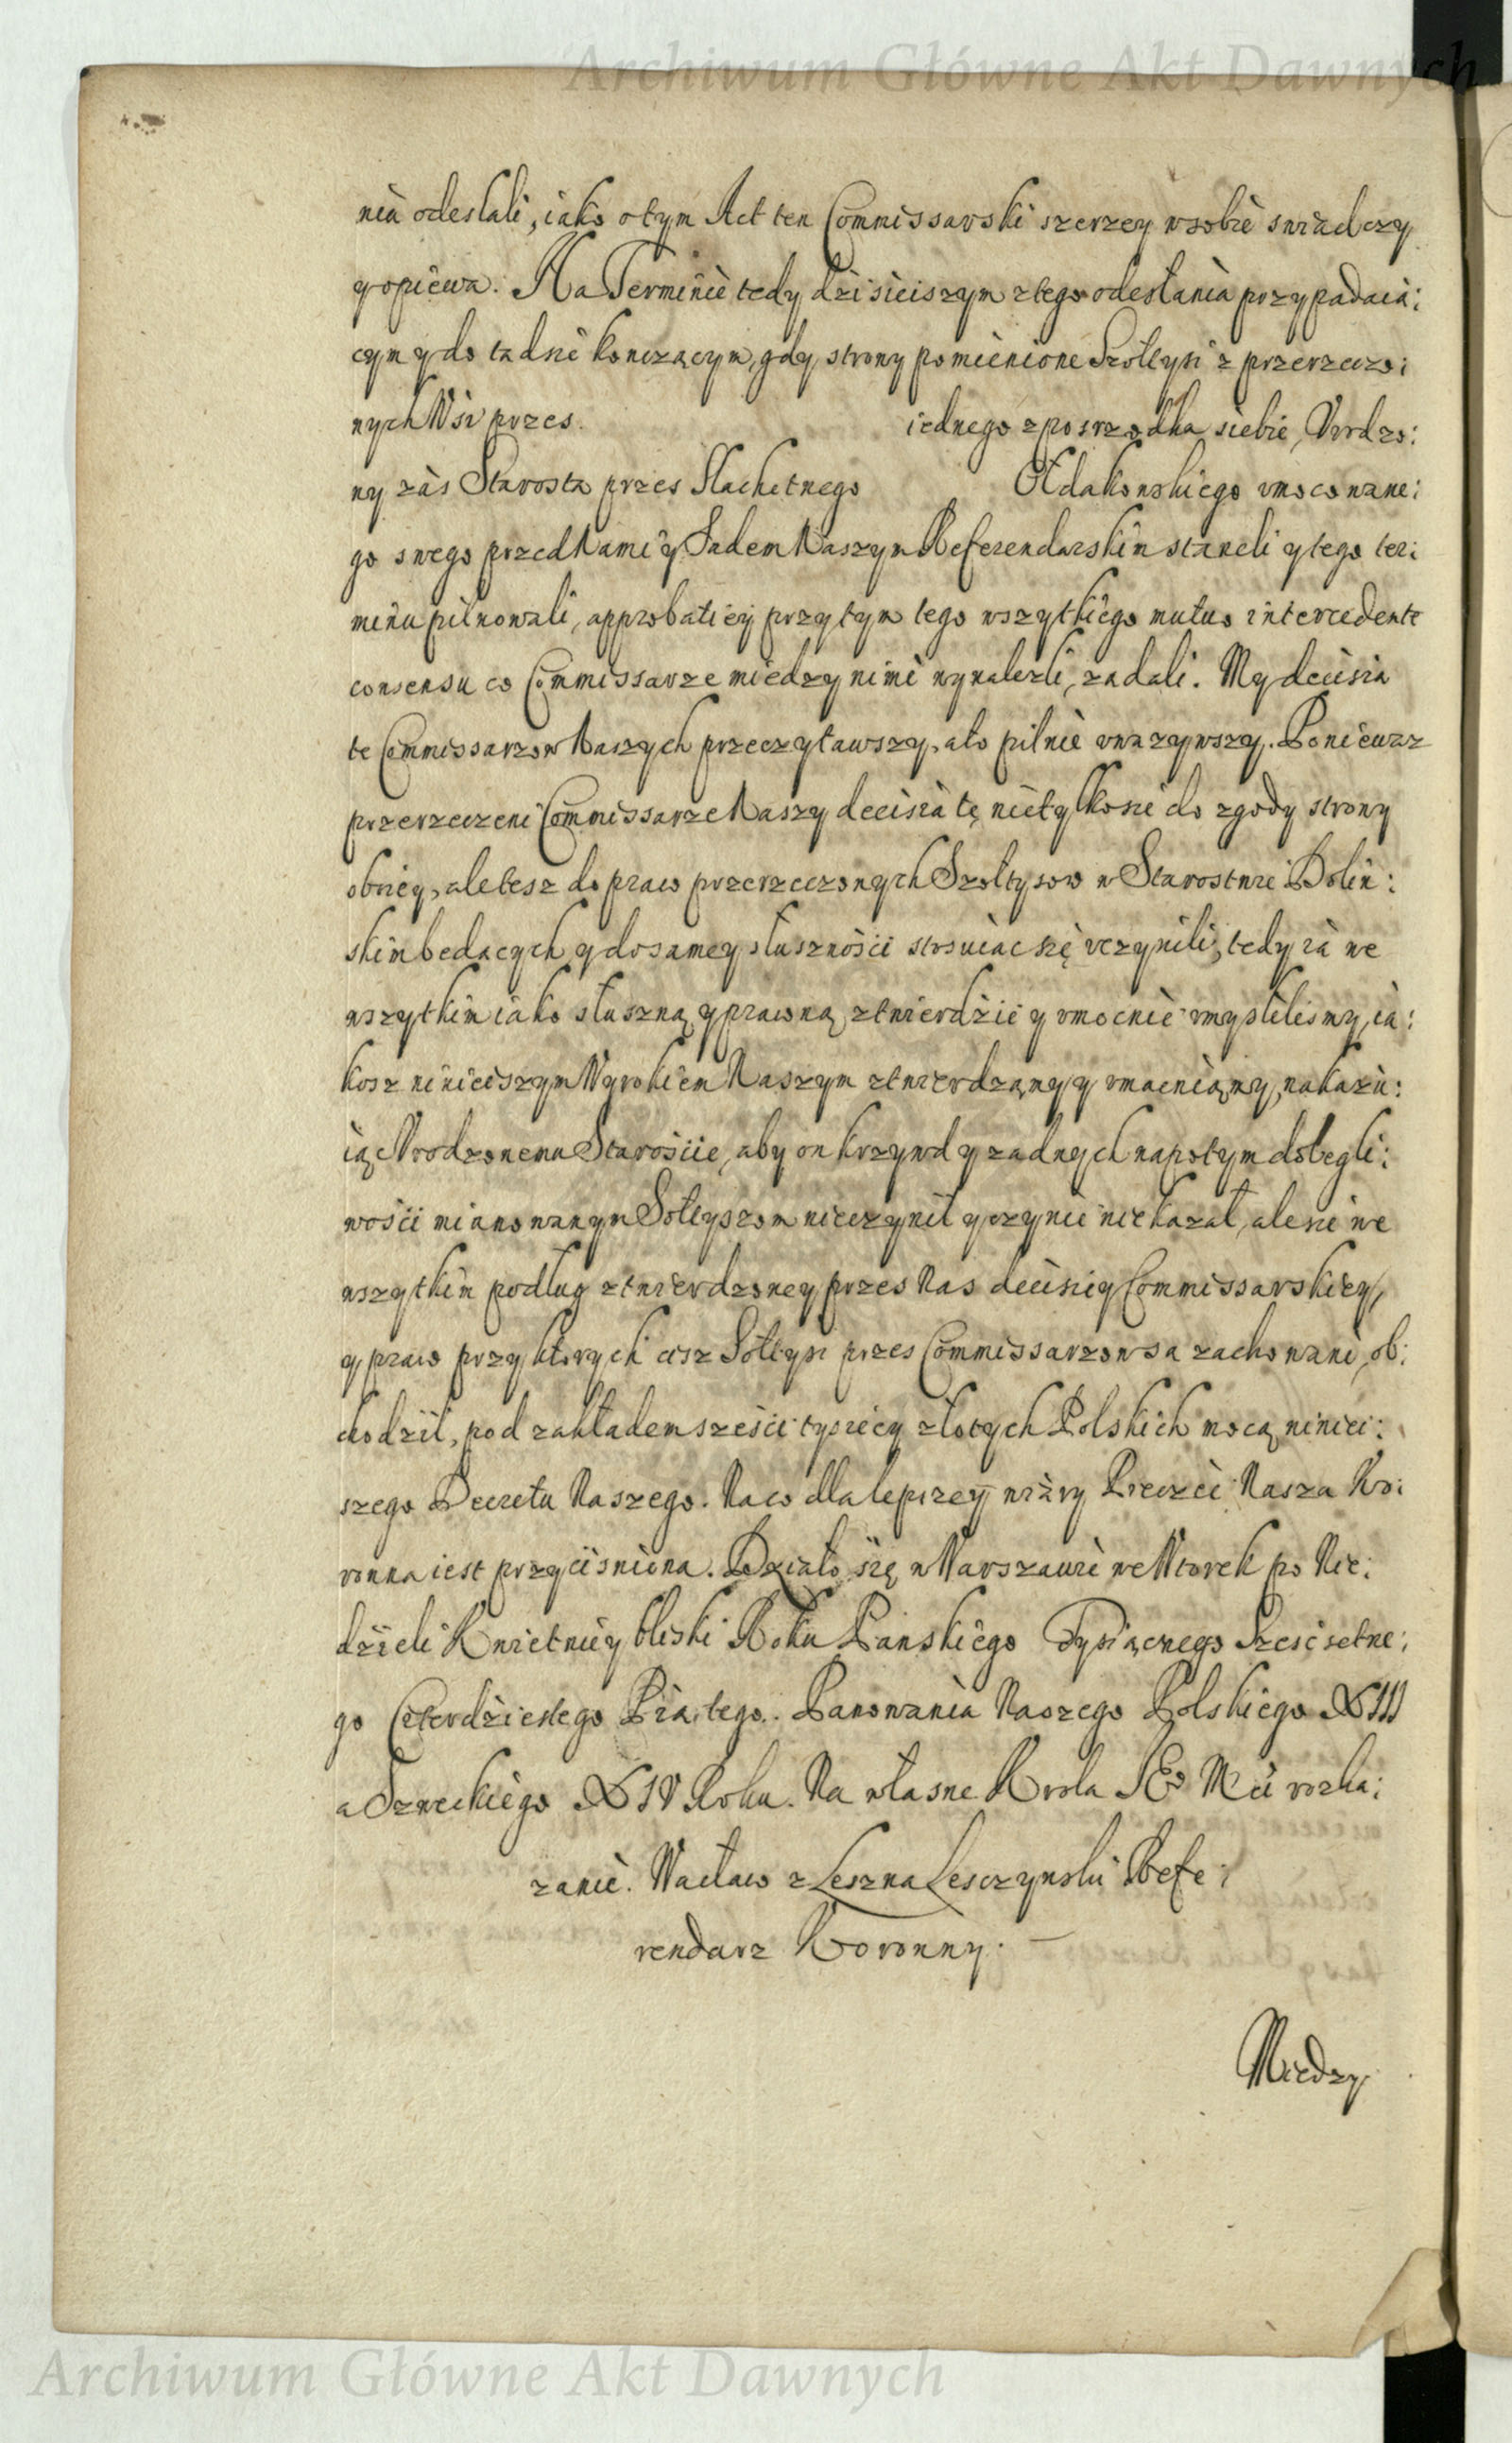 Archiwum Główne Akt Dawnych
nia odesłali, iako o tym Act ten Commissarski szerzey w sobie swiadczy
y opiewa. Na Terminie tedy dzisieiszym z tego odesłania przypadaią:
cym y do tądsie konczącym, gdy strony pomienione Szołtysi z przerzeczo:
nych Wsi przes iednego z posrzodka siebie, Vrodzo:
ny zás Starosta przes Slachetnego Ołdakowskiego vmocowane:
go swego przed Nami y Sądem Naszym Referendarskim staneli y tego ter:
minu pilnowali, approbatiey przytym tego wszytkiego mutuo intercedente
consensu co Commissarze miedzy nimi wynalezli, ządali. My decisią
tę Commissarzow Naszych przeczytawszy, a to pilnie vwazywszy. Poniewaz
przerzeczeni Commissarze Naszy decisią tę nietylko sie do zgody strony
oboiey, ale tesz do praw przerzeczonych Szołtysow w Starostwie Bolin:
skim bedących y do samey słusznosci stosuiąc się vczynili, tedy ią we
wszytkim iako słuszną y prawną ztwierdzić y vmocnić vmyslilismy, ia:
kosz ninieiszym Wyrokiem Naszym ztwierdzamy y vmacniamy, nakazu:
iąc Vrodzonemu Staroscie, aby on krzywdy zadnych napotym dolegli:
wosci mianowanym Sołtysom nieczynił y czynić nie kazał, ale sie we
wszytkim podług ztwierdzoney przes Nas decisiey Commissarskiey,
y praw przy ktorych cisz Sołtysi przes Commissarzow są zachowani, ob:
chodził, pod zakładem szesci tysiecy złotych Polskich mocą niniei:
szego Decretu Naszego. Na co dla lepszey wiary Pieczęć Nasza Ko:
ronna iest przycisniona. Działo się w Warszawie we Wtorek po Nie:
dzieli Kwietniey bliski Roku Panskiego Tysiącnego Szescsetne:
go Czterdziestego Piątego. Panowania Naszego Polskiego XIII
a Szweckiego XIV Roku. Na własne Krola JEo Mci rozka:
zanie. Wacław z Leszna Lesczynski Refe:
rendarz Koronny.
Miedzy
Archiwum Główne Akt Dawnych